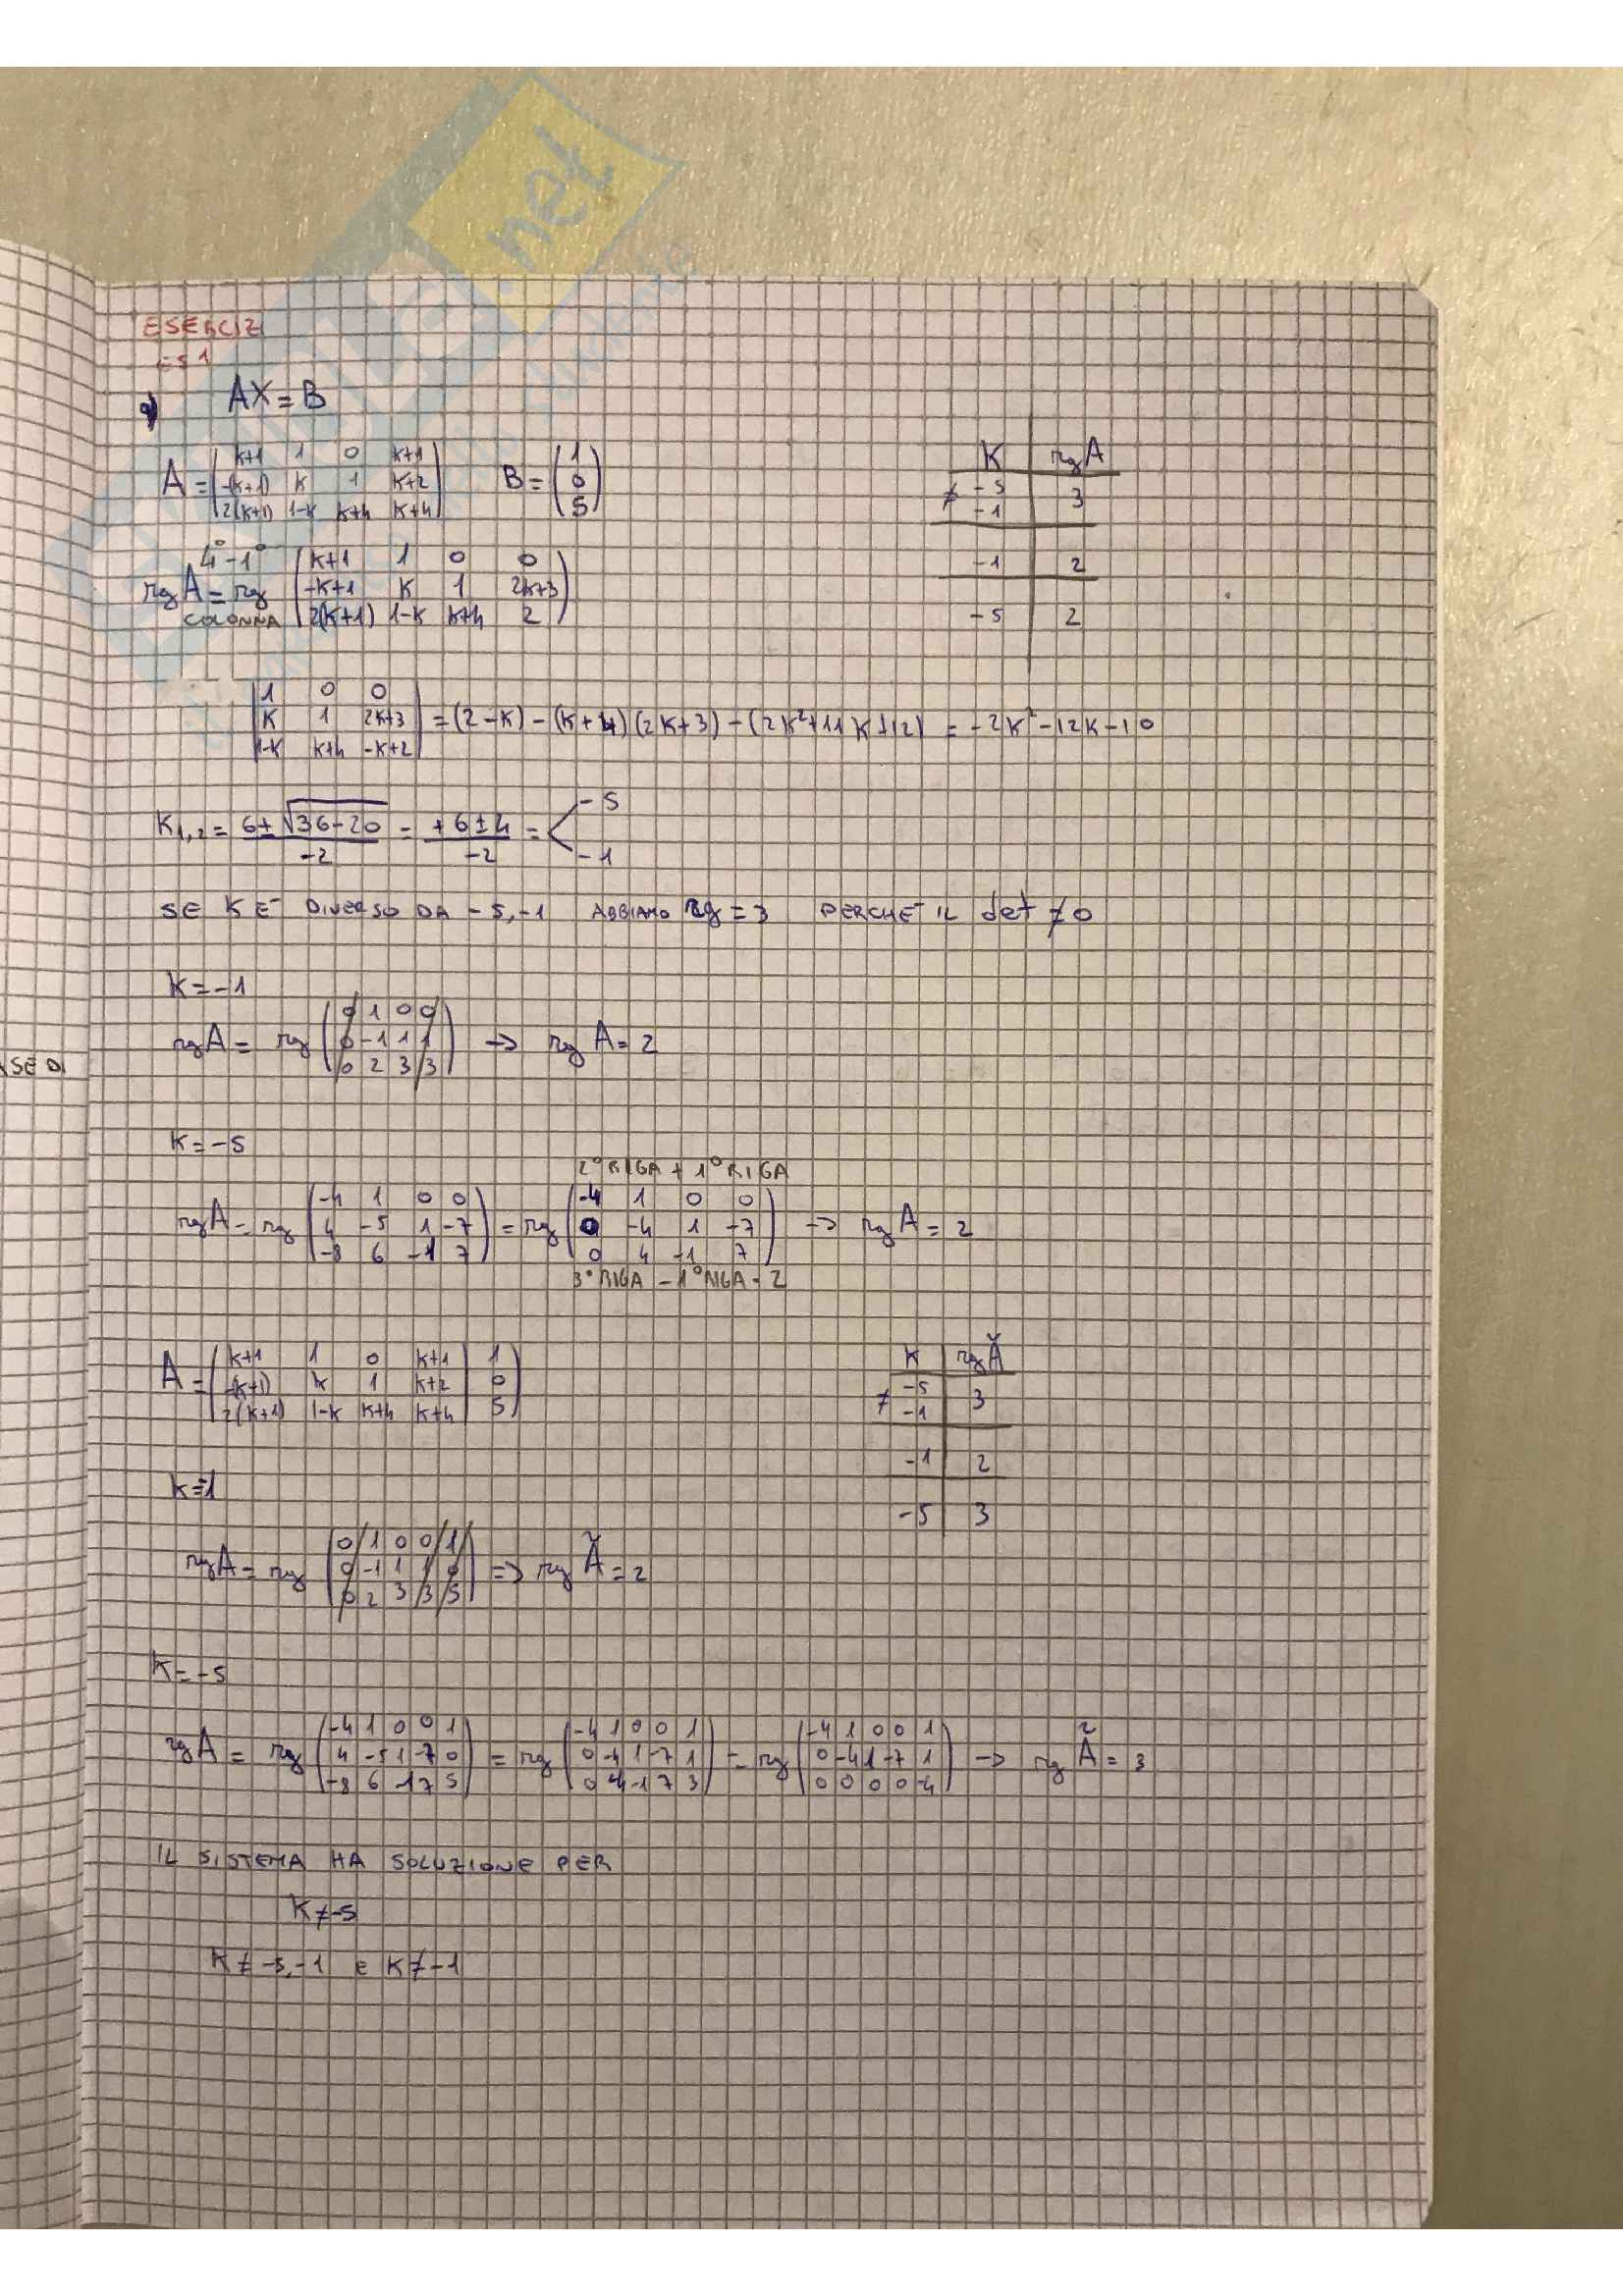 ESERCIZ
ES 1
a) AX = B
A = ( k+1 1 0 k+1 B = ( 1 K | rg A
-(k+1) k 1 k+2 0 ≠ -5 -1 | 3
2(k+1) 1-k k+4 k+4 ) 5 ) -1 | 2
-5 | 2
4°-1°
COLONNA
rg A = rg ( k+1 1 0 0
-k+1 k 1 2k+3
2(k+1) 1-k k+4 2 )
| 1 0 0
k 1 2k+3
1-k k+4 -k+2 | = (2-k) - (k+4)(2k+3) - (2k²+11k+12) = -2k²-12k-10
K1,2 = 6±√36-20 / -2 = +6±4 / -2 = < -5
-1
SE K E' DIVERSO DA -5,-1 ABBIAMO rg = 3 PERCHE' IL det ≠ 0
K = -1
rg A = rg ( 0 1 0 0
0 -1 1 1
0 2 3 3 ) → rg A = 2
ASE DI
K = -5
2° RIGA + 1° RIGA
rg A = rg ( -4 1 0 0
4 -5 1 -7
-8 6 -1 7 ) = rg ( -4 1 0 0
0 -4 1 -7
0 4 -1 7 ) → rg A = 2
3° RIGA - 1° RIGA · 2
A = ( k+1 1 0 k+1 | 1
-(k+1) k 1 k+2 | 0
2(k+1) 1-k k+4 k+4 | 5 )
K | rg Ã
≠ -5 -1 | 3
-1 | 2
-5 | 3
K=-1
rg A = rg ( 0 1 0 0 1
0 -1 1 1 0
0 2 3 3 5 ) => rg Ã = 2
K = -5
rg A = rg ( -4 1 0 0 1
4 -5 1 -7 0
-8 6 -1 7 5 ) = rg ( -4 1 0 0 1
0 -4 1 -7 1
0 4 -1 7 3 ) = rg ( -4 1 0 0 1
0 -4 1 -7 1
0 0 0 0 -4 ) → rg Ã = 3
IL SISTEMA HA SOLUZIONE PER
K ≠ -5
K ≠ -5,-1 E K ≠ -1
.net